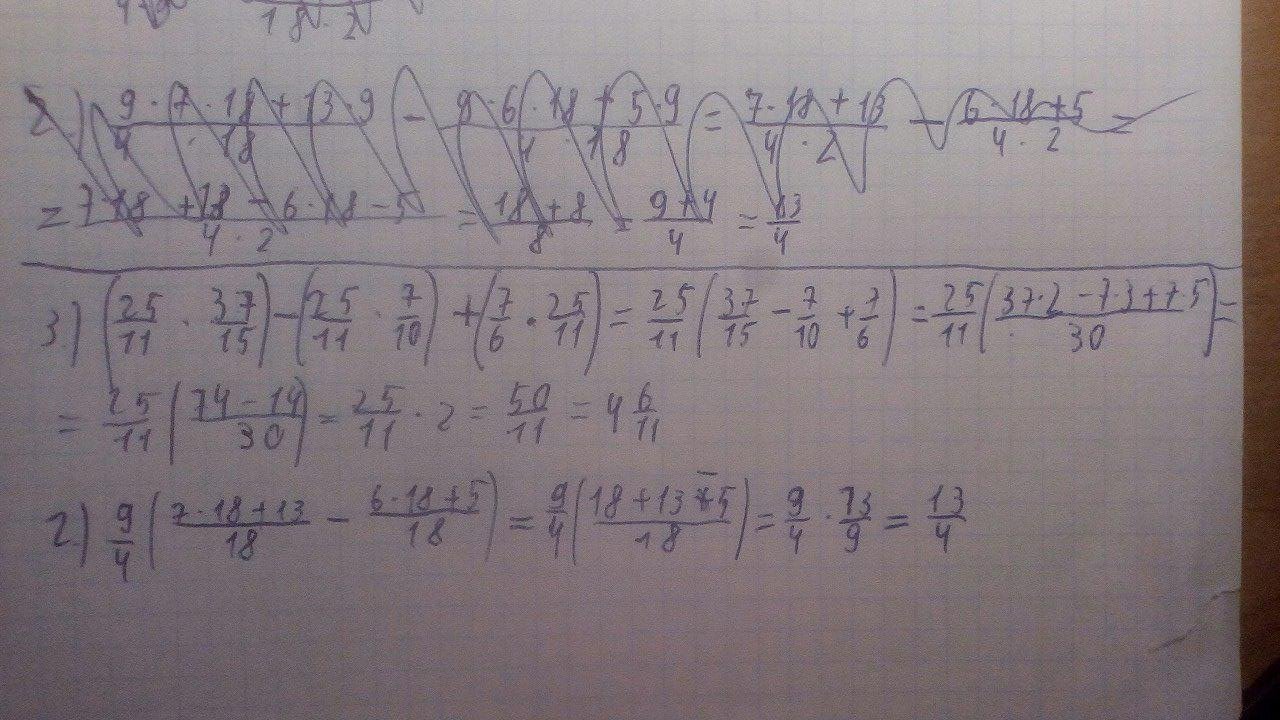 18 · 2
2.) (9·7·18+13·9)/(4·18) - (9·6·18+5·9)/(4·18) = (7·18+13)/(4·2) - (6·18+5)/(4·2) =
= (7·18+13-6·18-5)/(4·2) = (18+8)/8 = (9+4)/4 = 13/4
3.) (25/11 · 37/15) - (25/11 · 7/10) + (7/6 · 25/11) = 25/11 (37/15 - 7/10 + 7/6) = 25/11 ((37·2-7·3+7·5)/30) =
= 25/11 ((74-14)/30) = 25/11 · 2 = 50/11 = 4 6/11
2.) 9/4 ((7·18+13)/18 - (6·18+5)/18) = 9/4 ((18+13-5)/18) = 9/4 · 13/9 = 13/4